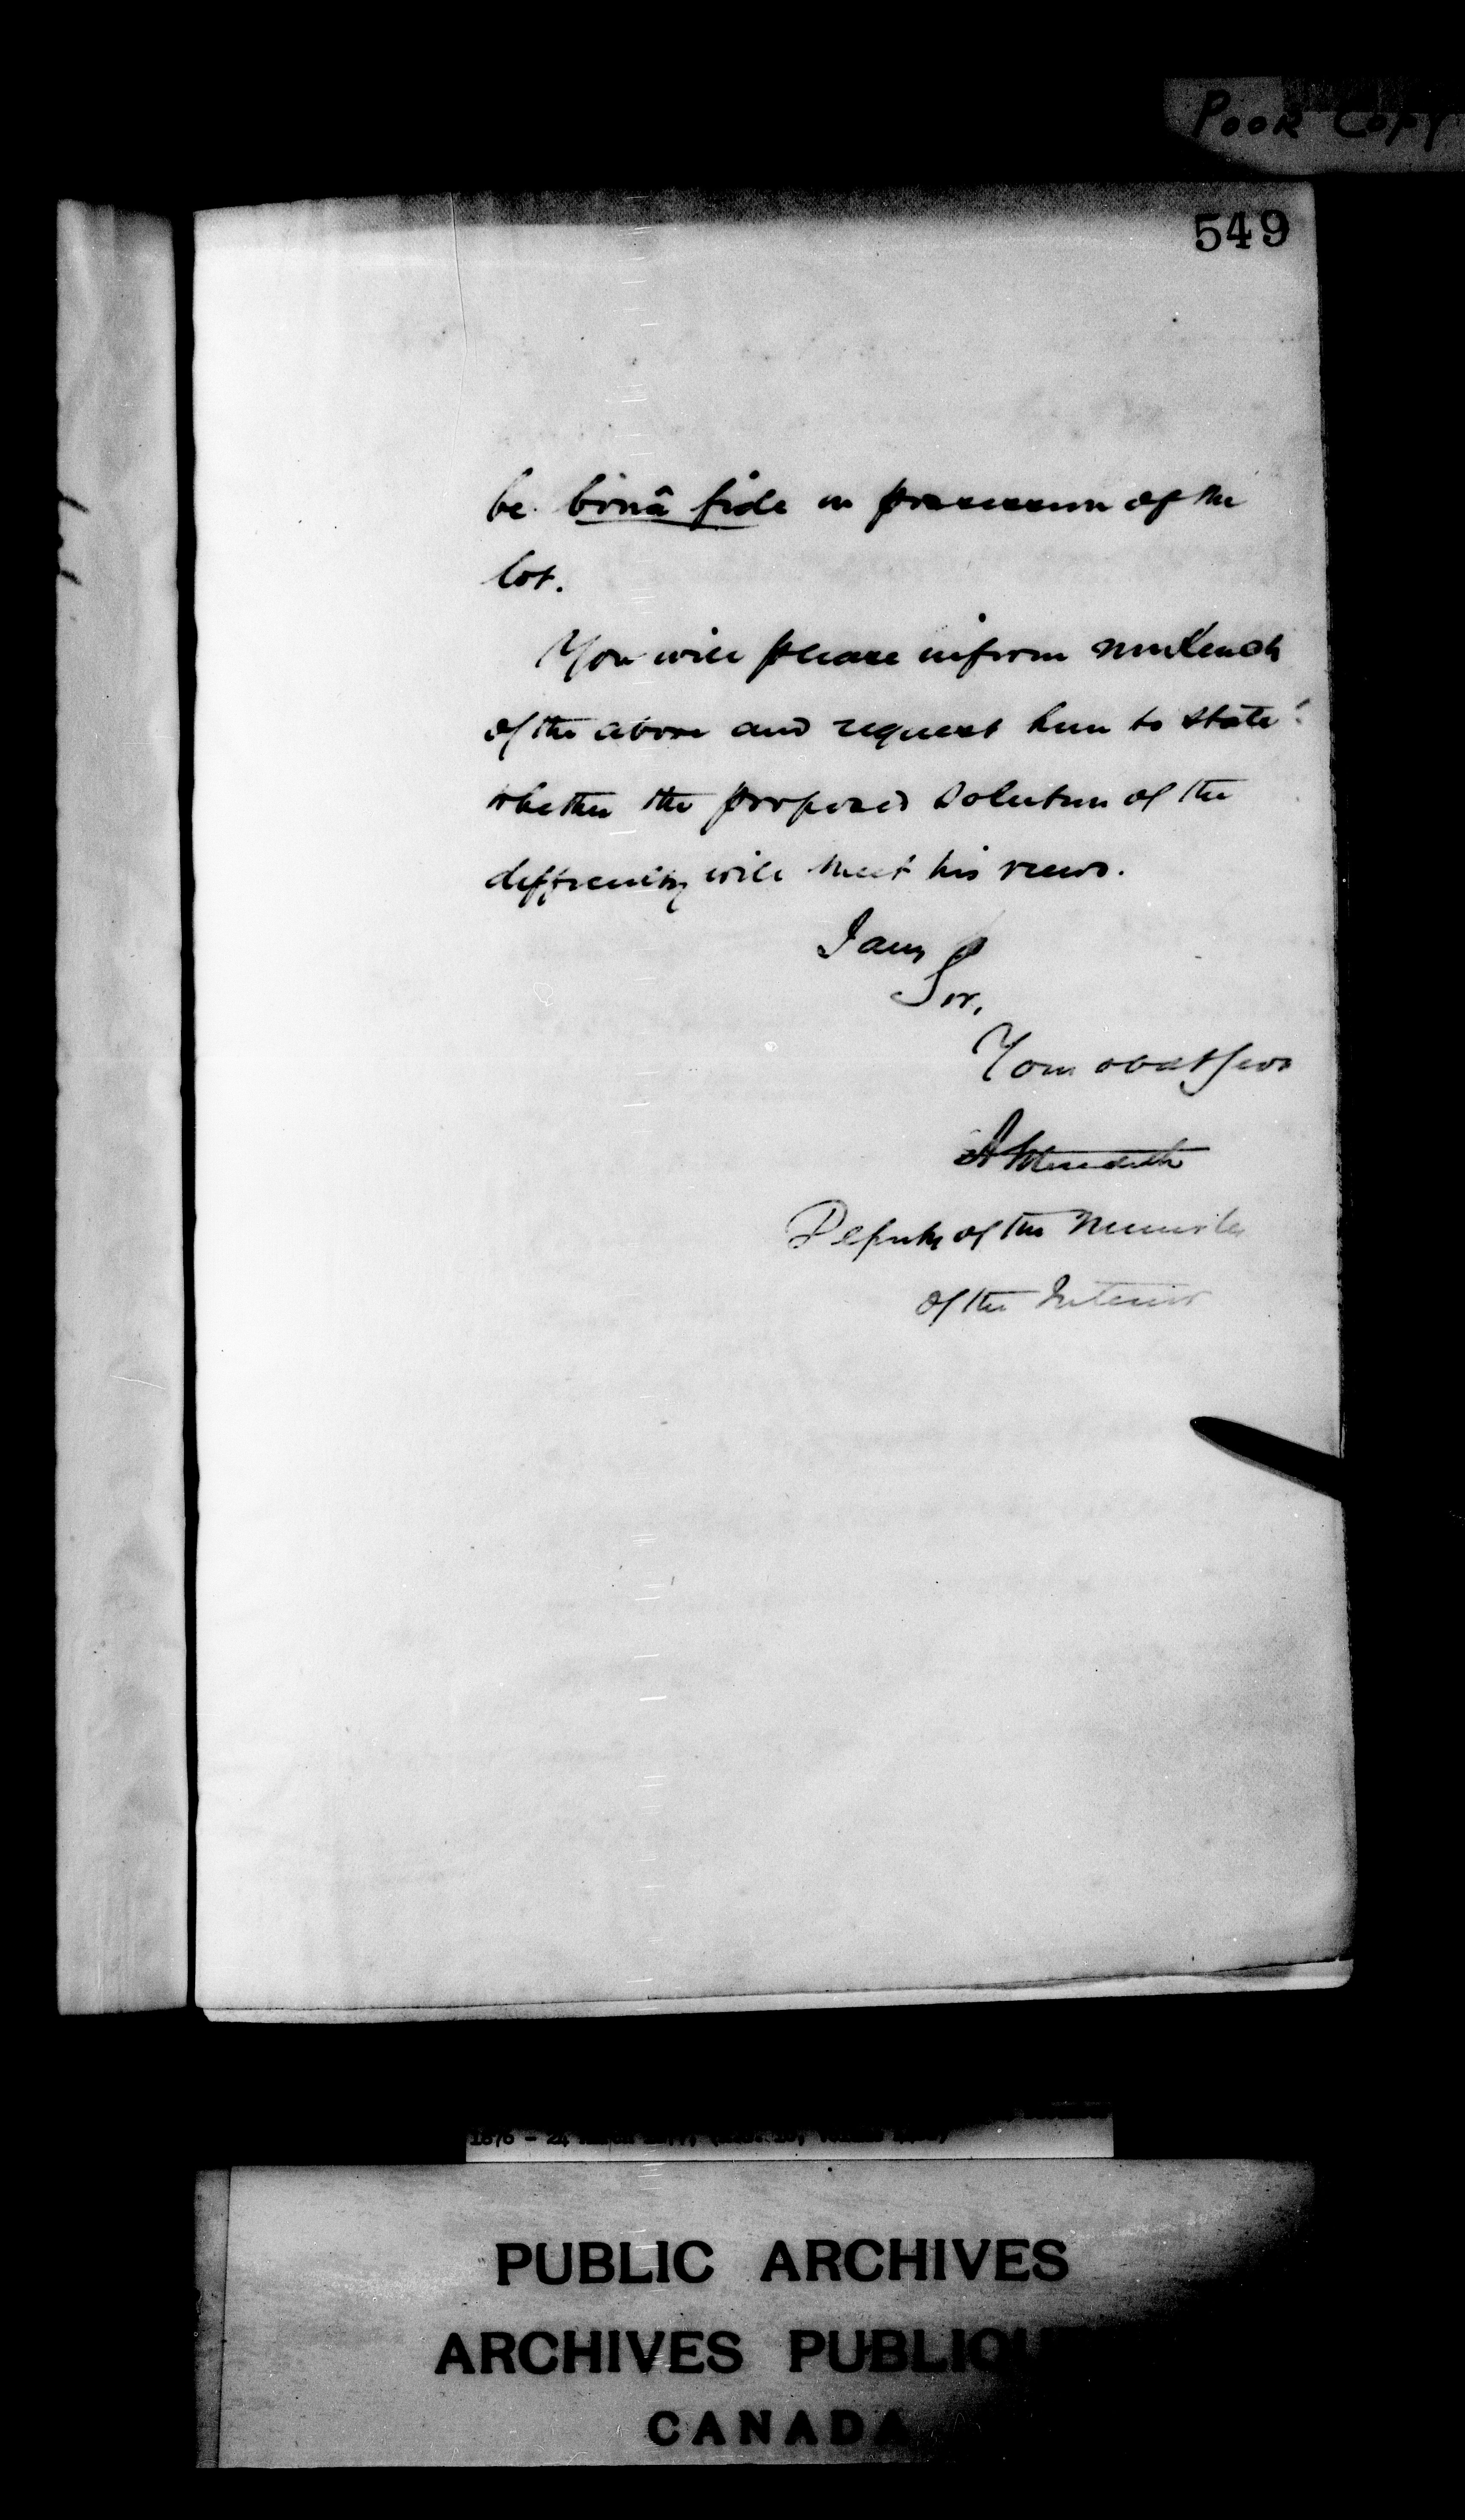 Poor Copy
549
be bonâ fide in possession of the
lot.
You will please inform
of the above and request him to state
whether the proposed solution of the
difficulty will meet his views.
I am
Sir,
Your obdt Serv
Meredith
Deputy of the Minister
of the Interior
1876 - 24
PUBLIC ARCHIVES
ARCHIVES PUBLIQU
CANADA